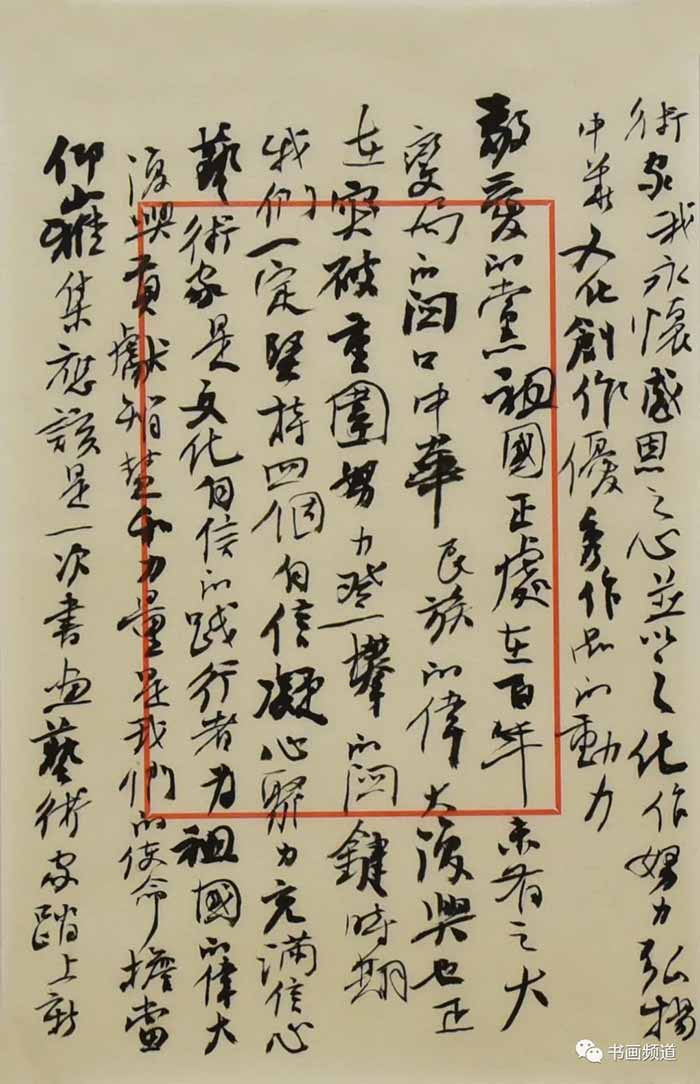 術家我永懷感恩之心並以之化作努力弘揚
中華文化創作優秀作品的動力
敬愛的黨祖國正處在百年未有之大
變局的關口中華民族的偉大復興也正
在突破重圍努力登攀的關鍵時期
我們一定堅持四個自信凝心聚力充滿信心
藝術家是文化自信的踐行者為祖國的偉大
復興貢獻智慧和力量是我們的使命擔當
仰山雅集應該是一次書畫藝術家踏上新
书画频道